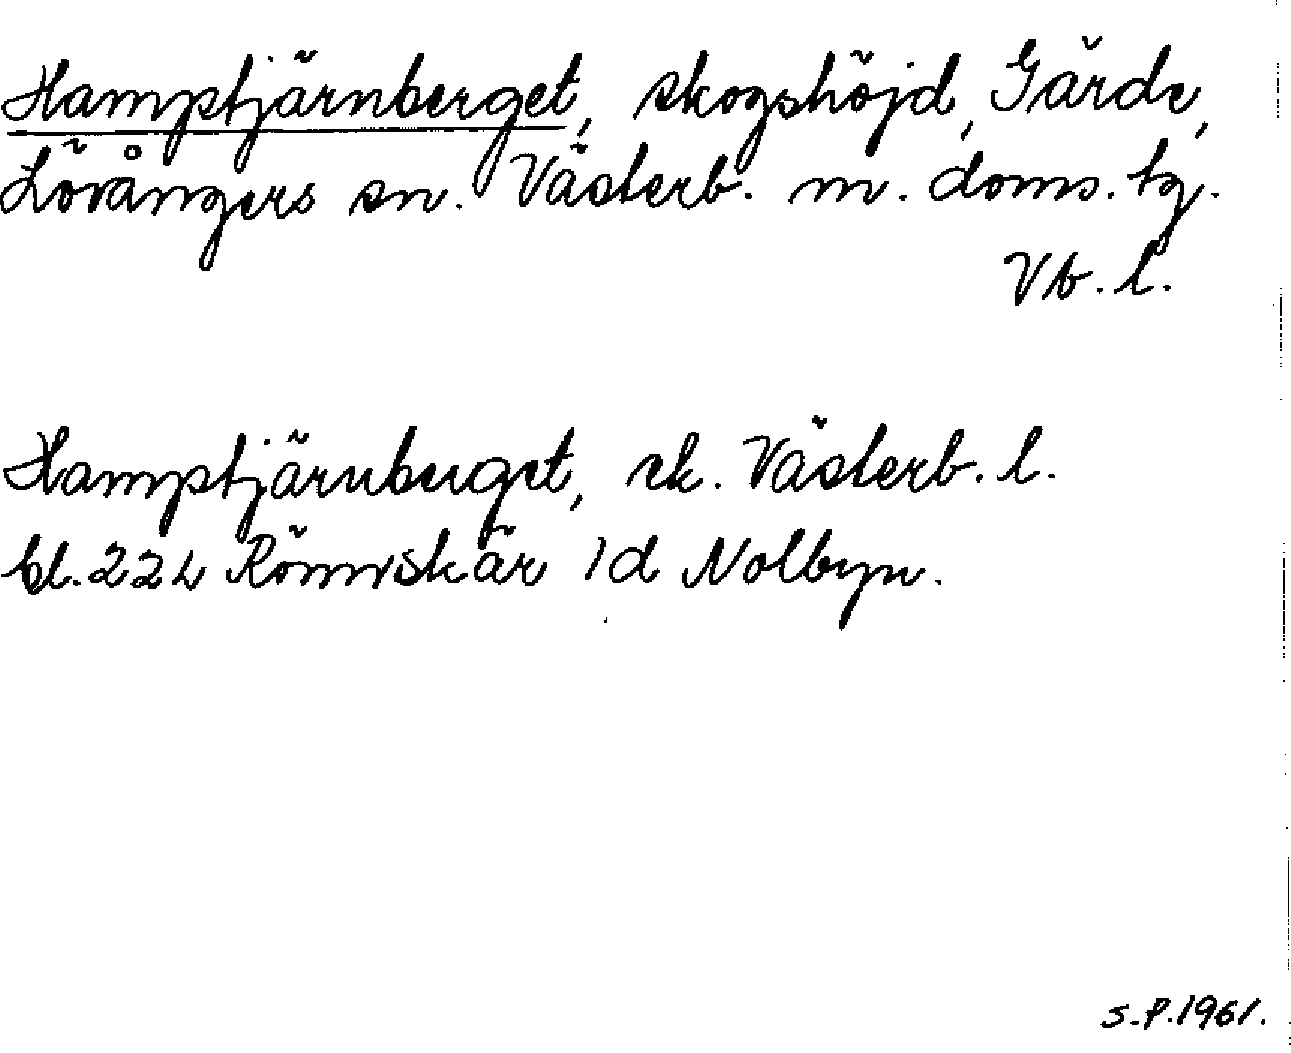 Hamptjärnberget, skogshöjd, Gärde,
Lövångers sn. Västerb. m. doms. tg.
Vb. l.
Hamptjärnberget, ek. Västerb. l.
bl. 22L Rönnskär 1d Nolbyn.
S.P. 1961.